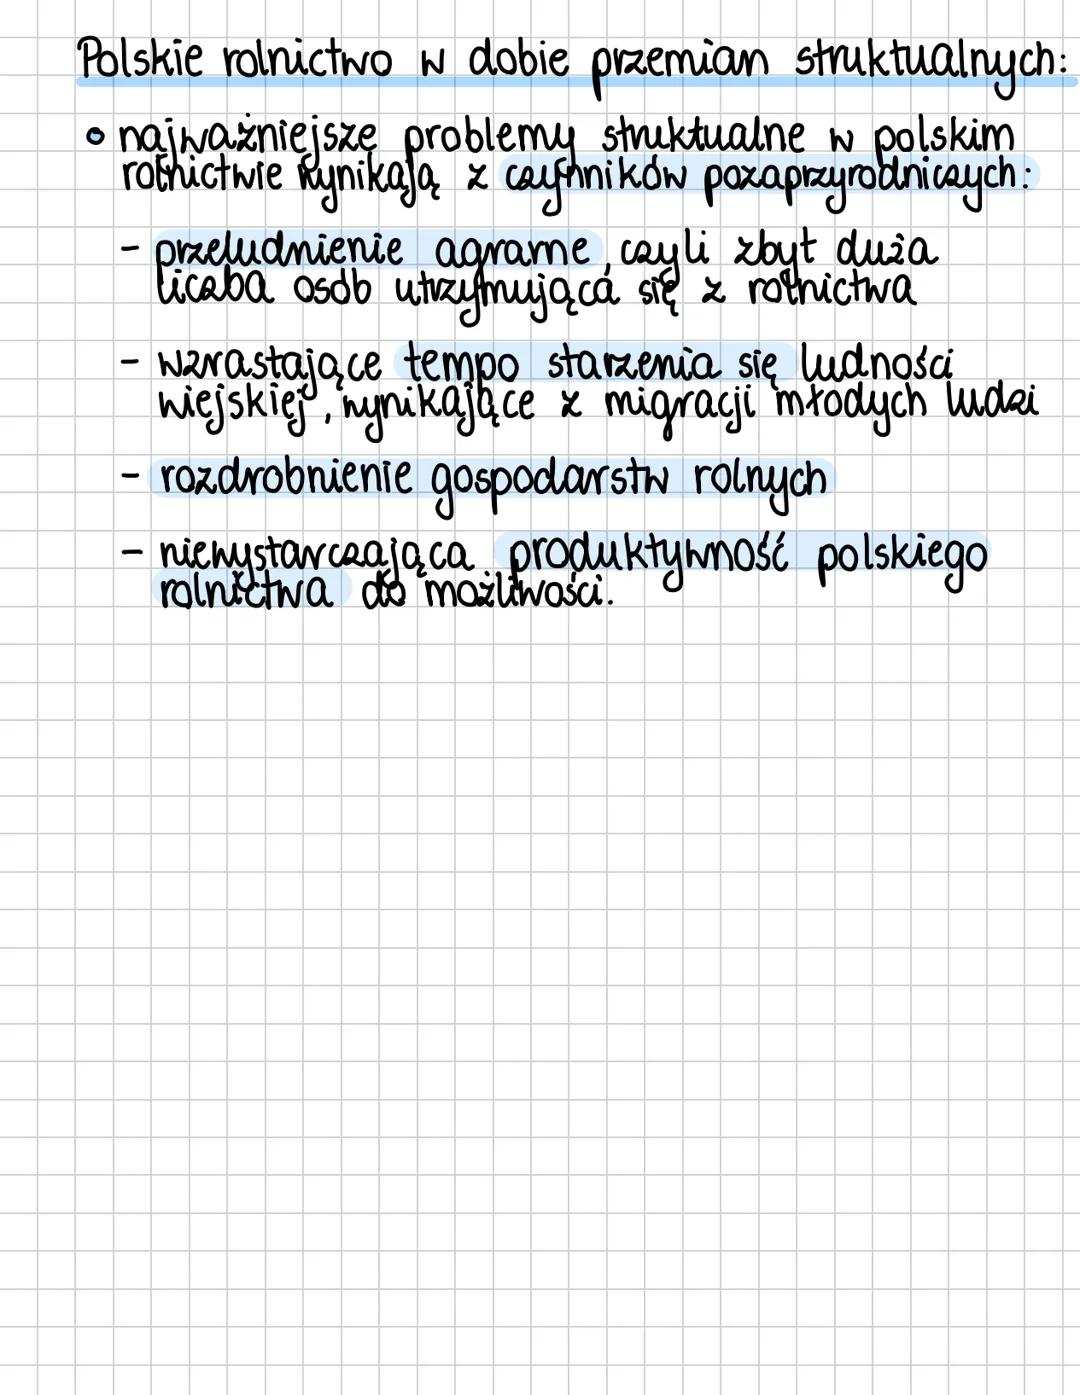 Polskie rolnictwo w dobie przemian struktualnych:
• najważniejsze problemy struktualne w polskim
rolnictwie wynikają z czynników pozaprzyrodniczych:
- przeludnienie agrarne, czyli zbyt duża
liczba osób utrzymująca się z rolnictwa
- wzrastające tempo starzenia się ludności
wiejskiej, wynikające z migracji młodych ludzi
- rozdrobnienie gospodarstw rolnych
- niewystarczająca produktywność polskiego
rolnictwa do możliwości.